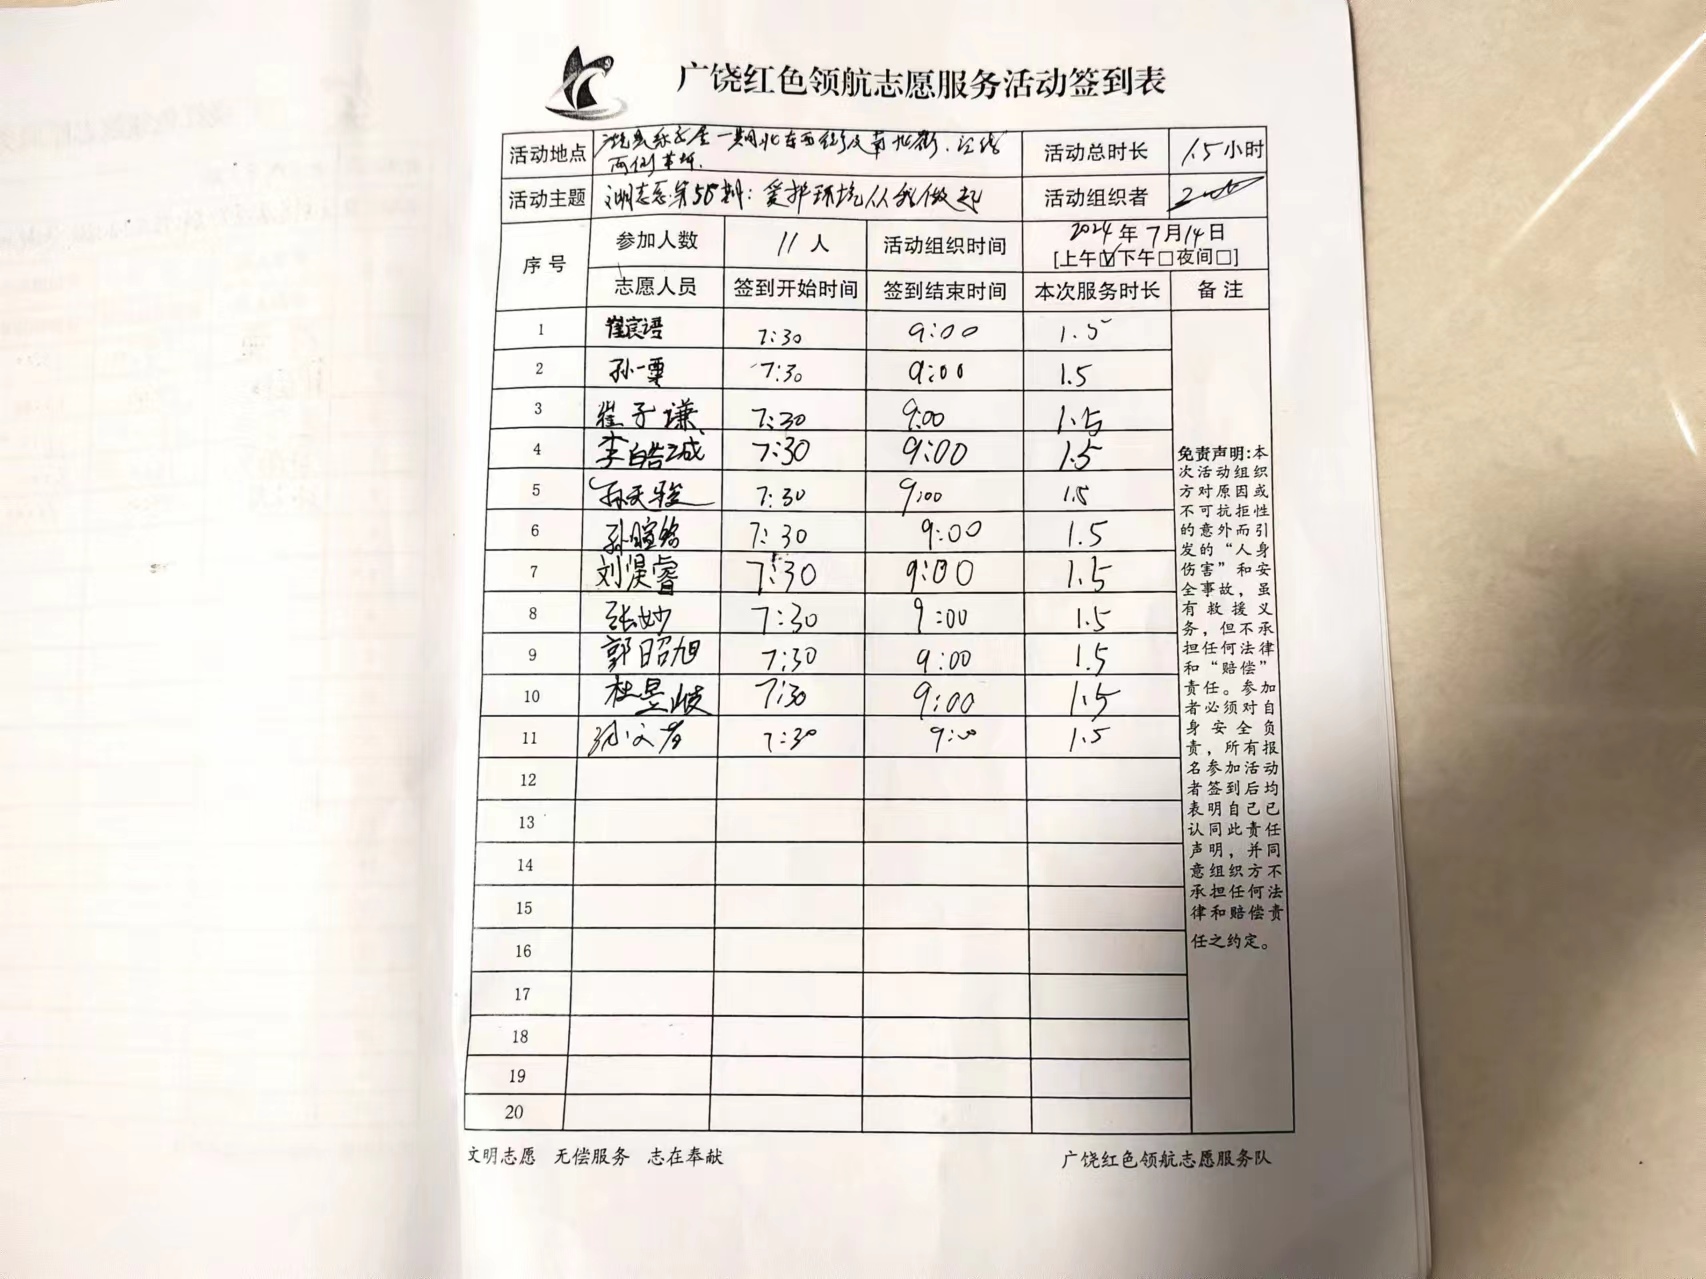 广饶红色领航志愿服务活动签到表
活动地点 一期北东西街及南北街、沿线两侧草坪. 活动总时长 1.5小时
活动主题 湖志愿第58期：爱护环境从我做起 活动组织者
序号 参加人数 11人 活动组织时间 2024年7月14日
[上午☑下午□夜间□]
志愿人员 签到开始时间 签到结束时间 本次服务时长 备注
1 崔宸语 7:30 9:00 1.5
2 孙一覃 7:30 9:00 1.5
3 崔子谦 7:30 9:00 1.5
4 李皓诚 7:30 9:00 1.5
5 孙天骏 7:30 9:00 1.5
6 孙暄铭 7:30 9:00 1.5
7 刘淏睿 7:30 9:00 1.5
8 张妙 7:30 9:00 1.5
9 郭昭旭 7:30 9:00 1.5
10 杜昱岐 7:30 9:00 1.5
11 7:30 9:00 1.5
12
13
14
15
16
17
18
19
20
免责声明:本
次活动组织
方对原因或
不可抗拒性
的意外而引
发的“人身
伤害”和安
全事故，虽
有救援义
务，但不承
担任何法律
和“赔偿”
责任。参加
者必须对自
身安全负
责，所有报
名参加活动
者签到后均
表明自己已
认同此责任
声明，并同
意组织方不
承担任何法
律和赔偿责
任之约定。
文明志愿 无偿服务 志在奉献
广饶红色领航志愿服务队